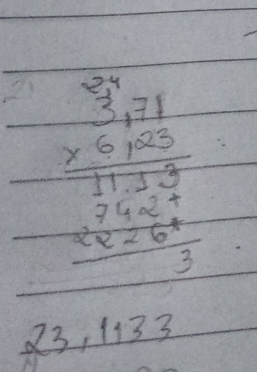 24
3,71
× 6,23
11 13
742+
2226*
3
23,1133